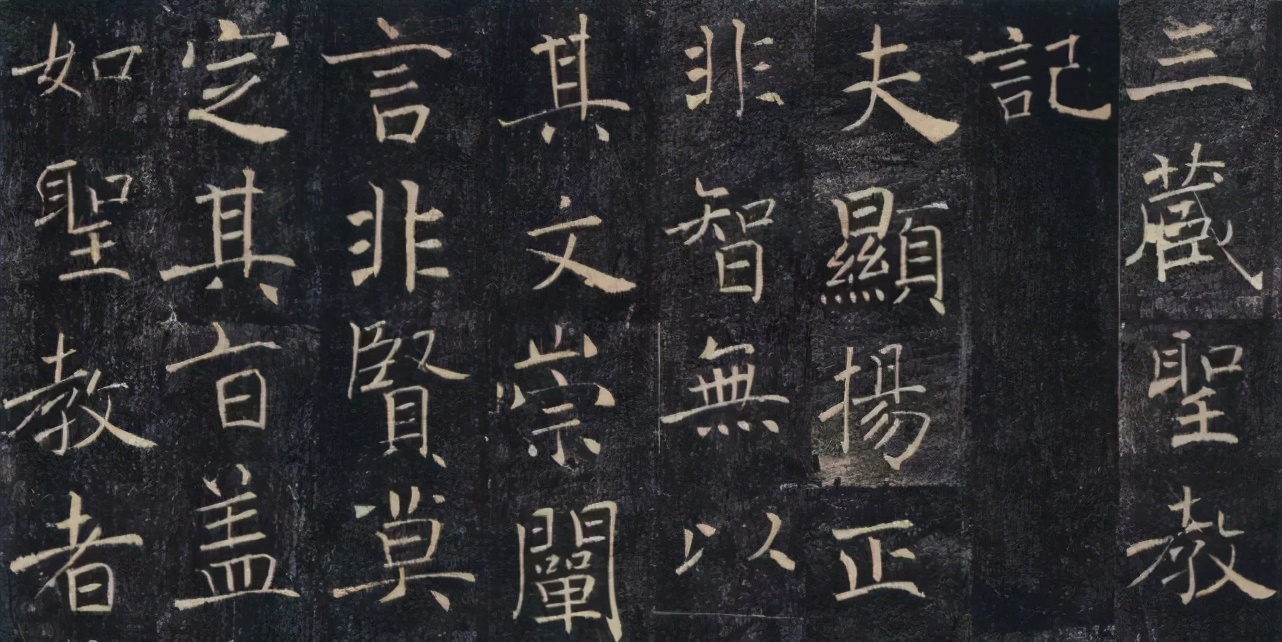 三藏聖教
記
夫顯揚正
非智無以
其文崇闡
言非賢莫
定其旨盖
如聖教者